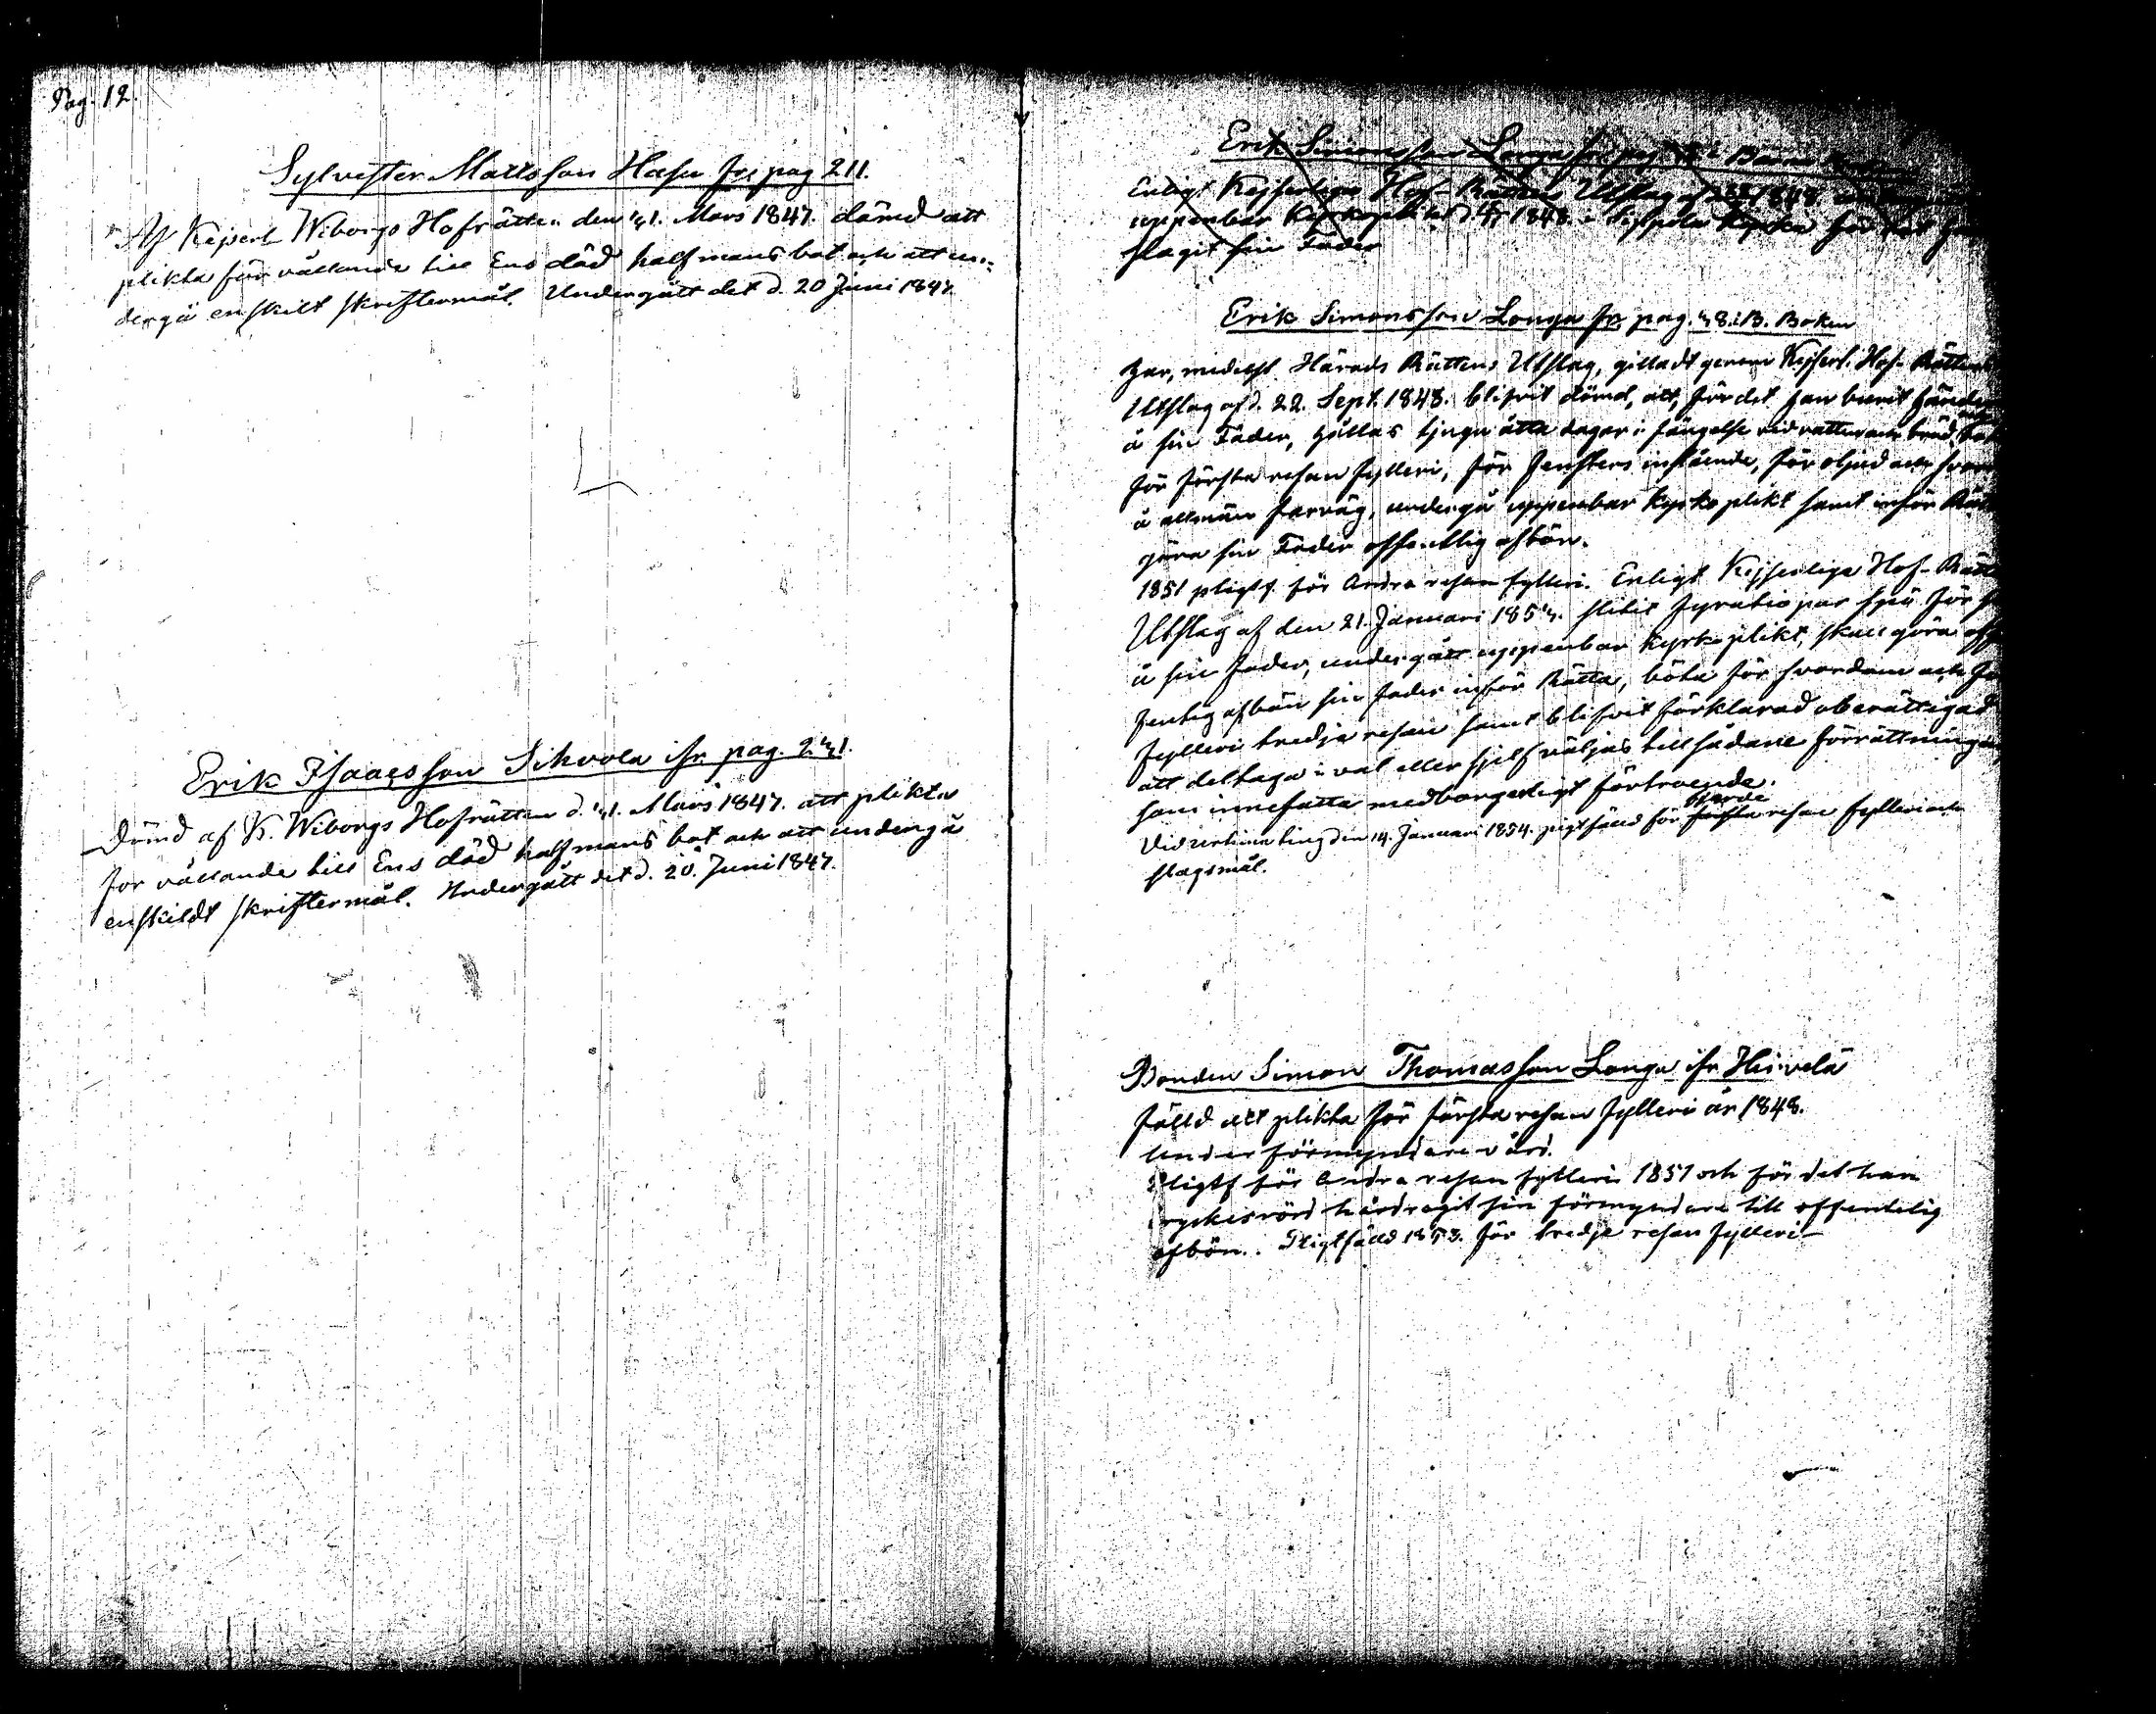 Pag. 12.
Sylvester Mattsson Hasu fr pag 211.
Af Kejserl Wiborgs Hofrätten den 41. Mars 1847. dömd att
plikta för vållande till Ens död half mans bot och att un-
dergå enskilt skriftermål. Undergått det d. 20 Juni 1847
Erik Isaacsson Sihvola ifr. pag. 241.
Dömd af K. Wiborgs Hofrätten d. 41. Mars 1847. att plikta
for vållande till Ens död half mans bot och att undergå
enskildt skriftermål. Undergått det d. 20. Juni 1847.
Erik Simonsson Longa fr pag
Enligt Kejserliga Hof-Rättens Utslag af 1848.
uppenbar Kyrkoplikt d. 1848. i Sippola Kyrka för det
slagit sin Fader
Erik Simonsson Longa fr pag. 48. i B. Boken
har, medelst Härads Rättens Utslag, gilladt genom Kejserl. Hof-Rättens
Utslag af d. 22. Sept. 1848. blifvit dömd, att, för det han burit händer
å sin Fader, hållas tjugu åtta dagar i fängelse vid vatten och bröd,
för första resan fylleri, för fensters inslående, för oljud och
å allmän farväg, undergå uppenbar kyrkoplikt samt inför
göra sin Fader offentlig afbön.
1851 pligtf. för Andra resan fylleri. Enligt Kejserliga Hof-
Utslag af den 21. Januari 1854. slitit fyratio par spö för
å sin fader, undergått uppenbar kyrkoplikt, skall göra
fentlig afbön sin fader inför Rätta, böta för svordom och
fylleri tredje resan samt blifvit förklarad oberättigad
att deltaga i val eller sjelf väljas till sådane förrättningar,
som innefatta medborgerligt förtroende.
Vid ting den 14. Januari 1854. pligtfälld för första fjerde resan fylleri och
slagsmål.
Bonden Simon Thomasson Longa ifr Heivelä
fälld att plikta för första resan fylleri år 1848.
under förmyndare vård.
Pligtf för Andra resan fylleri 1851 och för det han
hårdragit sin förmyndare till offentelig
afbön. Pligtfälld 1853. för tredje resan fylleri